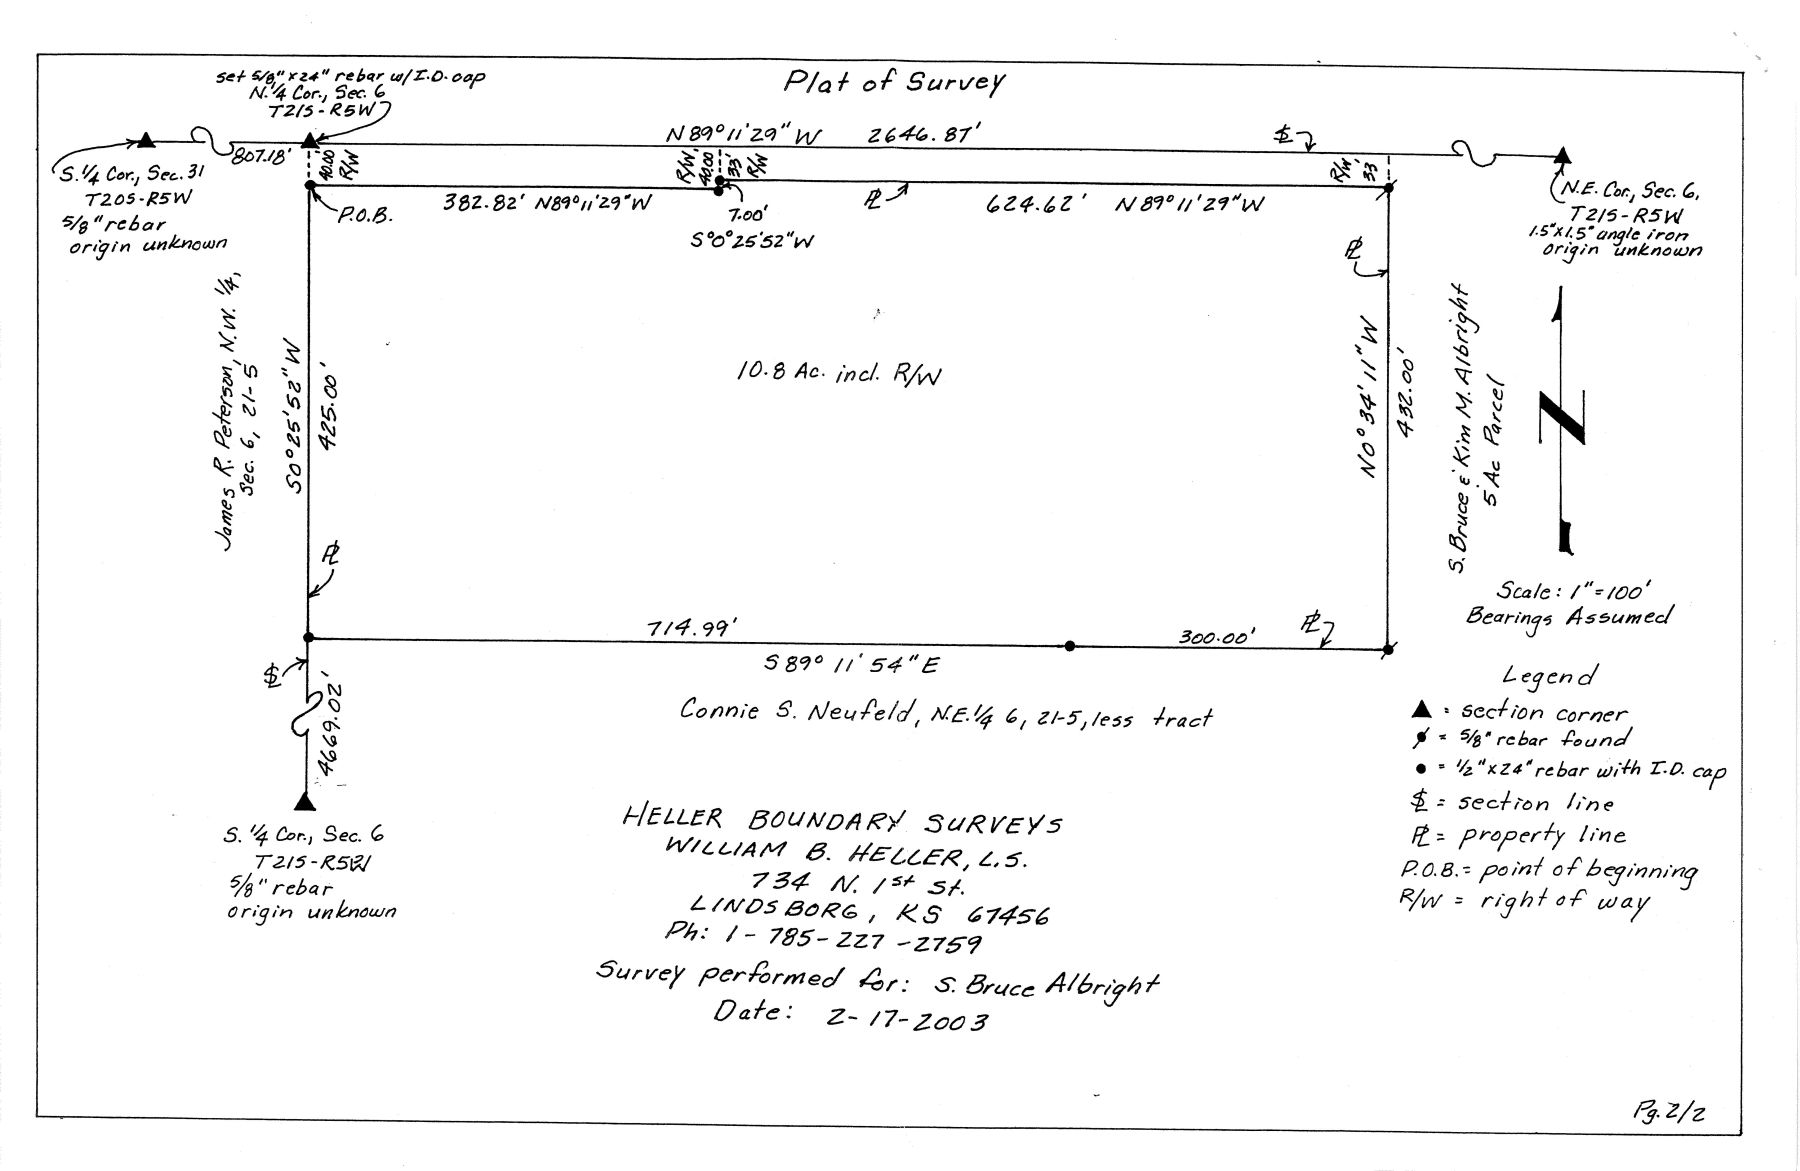 Plat of Survey
set 5/8"x24" rebar w/ I.D. cap
N. 1/4 Cor., Sec. 6
T21S-R5W
N 89° 11' 29" W 2646.87'
SL
807.18'
40.00'
R/W
R/W
40.00'
33'
R/W
R/W
33'
S. 1/4 Cor., Sec. 31
T20S-R5W
5/8" rebar
origin unknown
P.O.B.
382.82' N89°11'29"W
7.00'
S°0°25'52"W
PL
624.62' N89°11'29"W
N.E. Cor., Sec. 6,
T21S-R5W
1.5"x1.5" angle iron
origin unknown
James R. Peterson, N.W. 1/4,
Sec. 6, 21-5
S0°25'52"W
425.00'
PL
10.8 Ac. incl. R/W
PL
N0° 34' 11" W
432.00'
S. Bruce & Kim M. Albright
5 Ac Parcel
N
Scale: 1"=100'
Bearings Assumed
714.99'
300.00'
PL
S 89° 11' 54" E
SL
4669.02'
Connie S. Neufeld, N.E. 1/4 6, 21-5, less tract
S. 1/4 Cor., Sec. 6
T21S-R5W
5/8" rebar
origin unknown
Legend
▲ = section corner
= 5/8" rebar found
● = 1/2"x24" rebar with I.D. cap
SL = section line
PL = property line
P.O.B. = point of beginning
R/W = right of way
HELLER BOUNDARY SURVEYS
WILLIAM B. HELLER, L.S.
734 N. 1st St.
LINDSBORG, KS 67456
Ph: 1-785-227-2759
Survey performed for: S. Bruce Albright
Date: 2-17-2003
Pg. 2/2